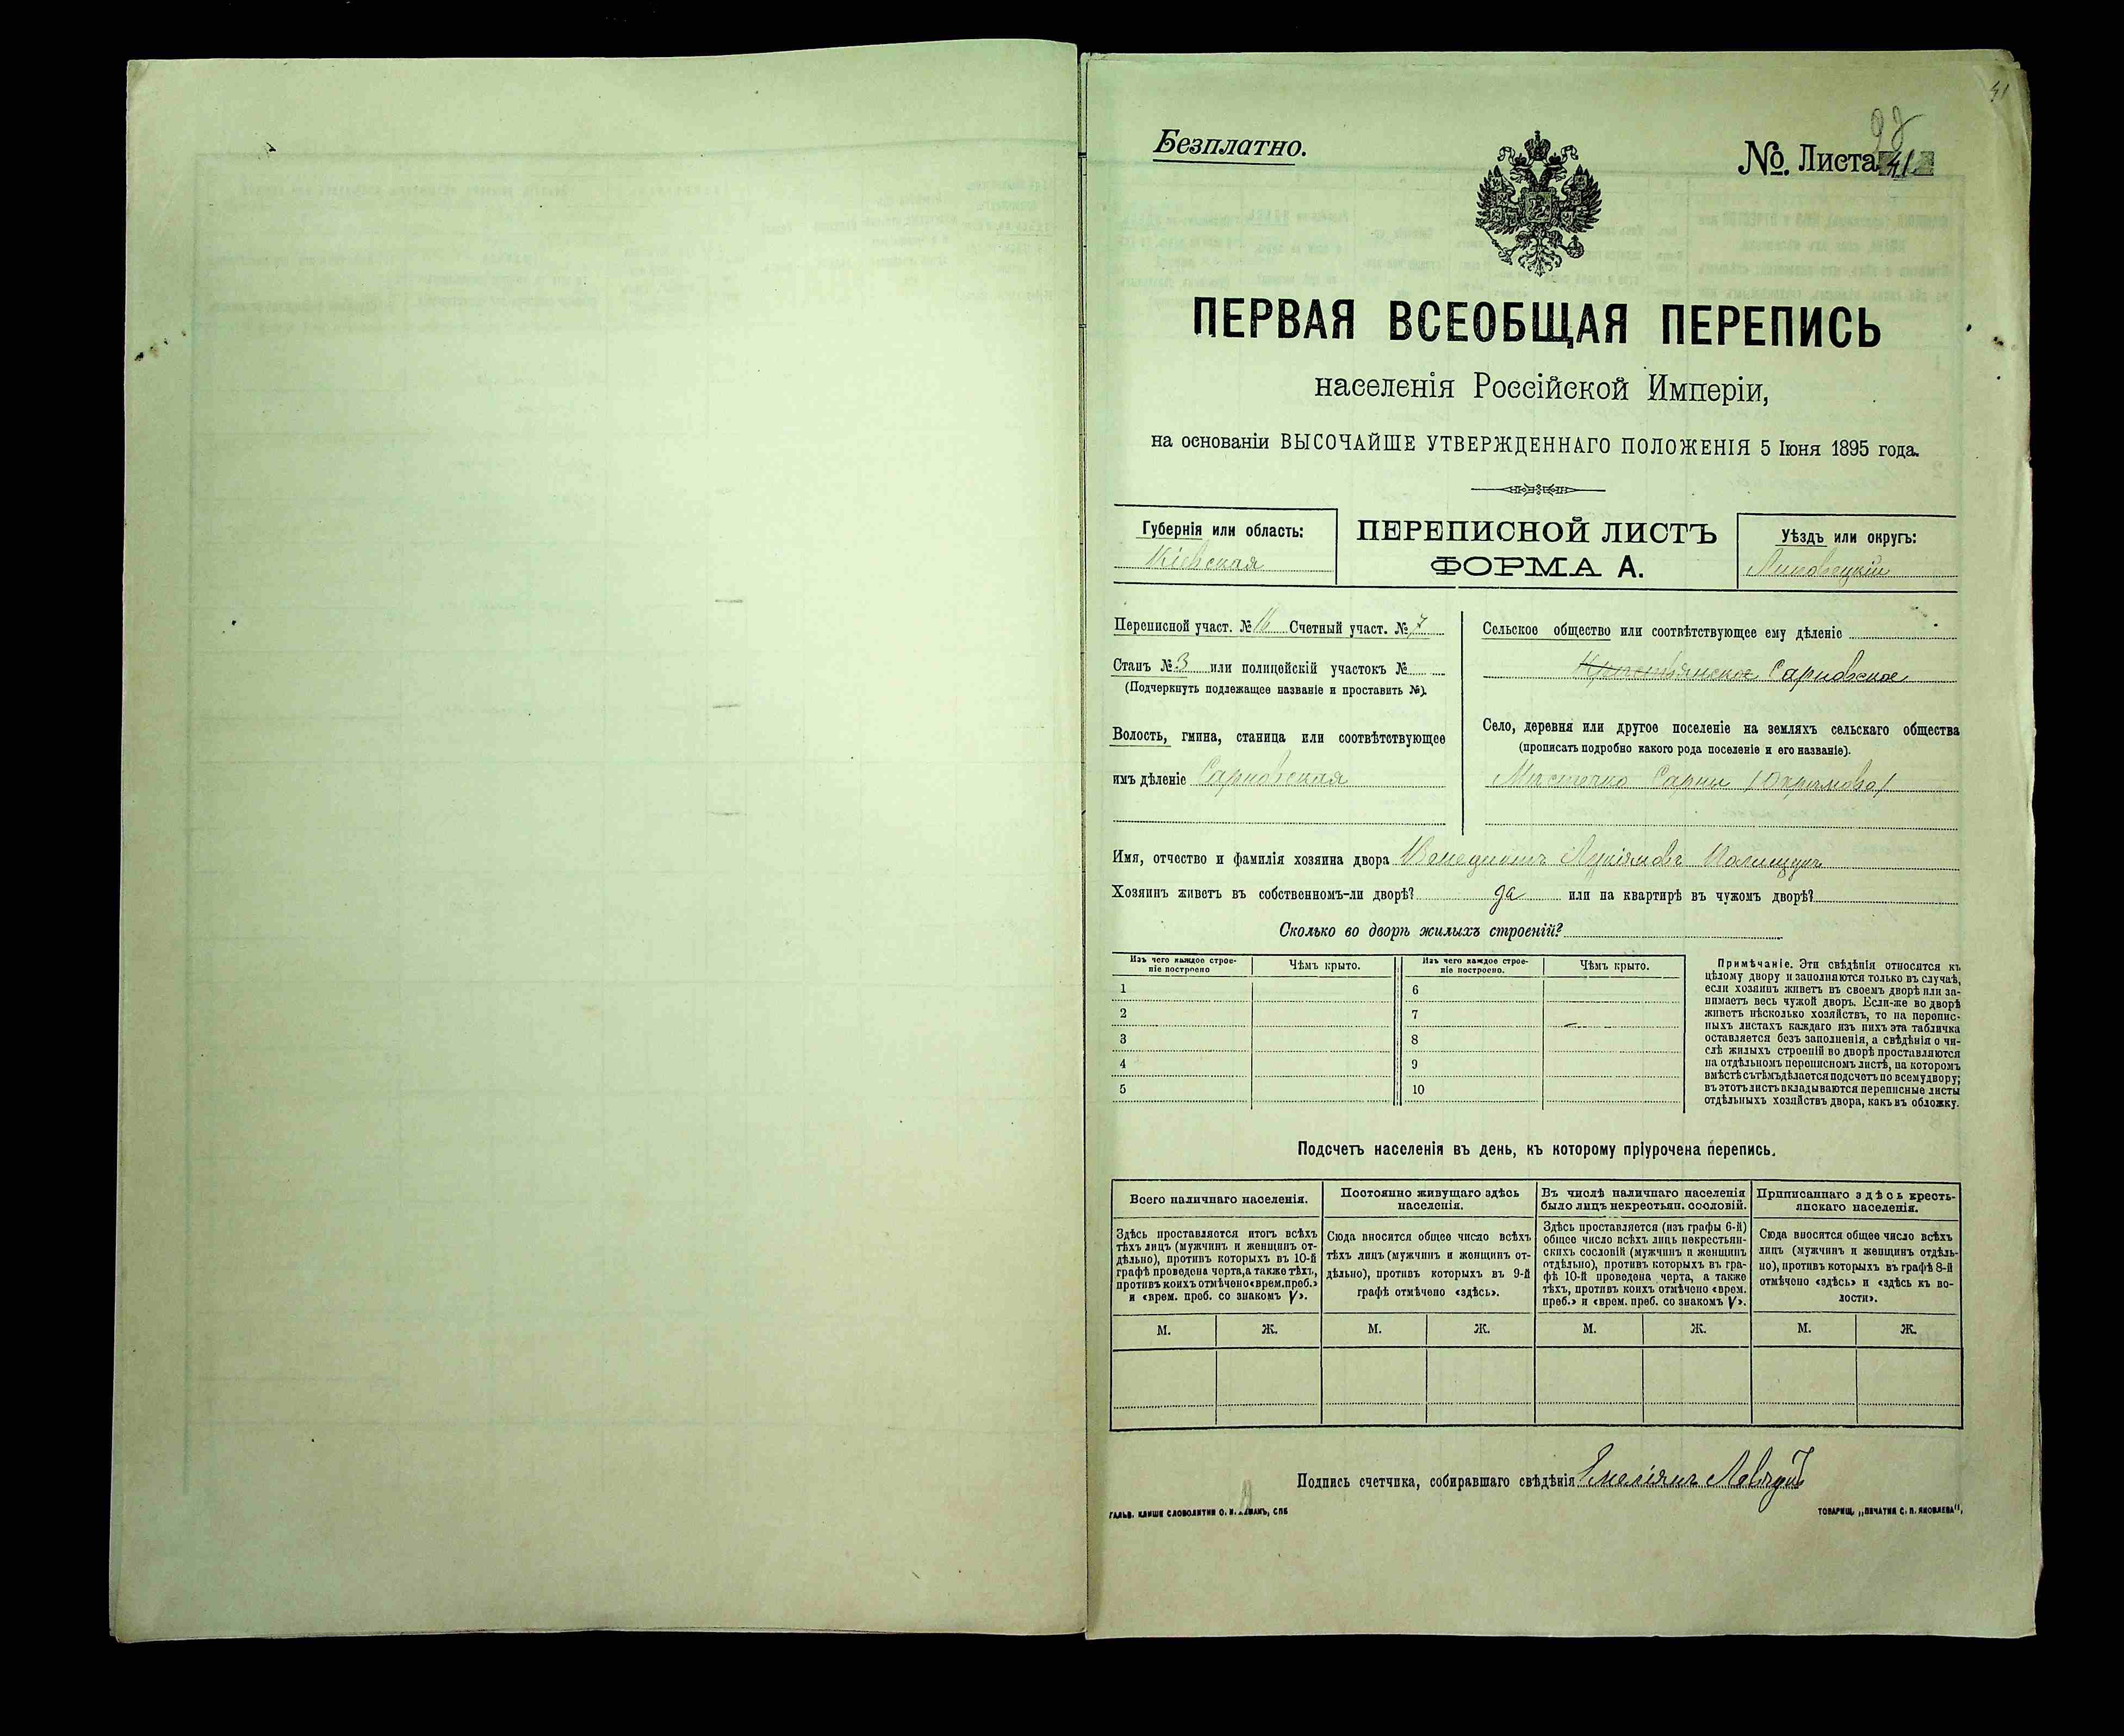 41
Безплатно.
98
№. Листа 41
ПЕРВАЯ ВСЕОБЩАЯ ПЕРЕПИСЬ
населенія Россійской Имперіи,
на основаніи ВЫСОЧАЙШЕ УТВЕРЖДЕННАГО ПОЛОЖЕНІЯ 5 Іюня 1895 года.
Губернія или область:
Кіевская
ПЕРЕПИСНОЙ ЛИСТЪ
ФОРМА А.
Уѣздъ или округъ:
Липовецкій
Переписной участ. № 16 Счетный участ. № 7
Станъ № 3 или полицейскій участокъ №
(Подчеркнуть подлежащее названіе и проставить №).
Волость, гмина, станица или соотвѣтствующее
имъ дѣленіе Сарновская
Сельское общество или соотвѣтствующее ему дѣленіе
Крестьянское Сарновское
Село, деревня или другое поселеніе на земляхъ сельскаго общества
(прописать подробно какого рода поселеніе и его названіе).
Мѣстечко Сарны
Имя, отчество и фамилія хозяина двора
Хозяинъ живетъ въ собственномъ-ли дворѣ? да или на квартирѣ въ чужомъ дворѣ?
Сколько во дворѣ жилыхъ строеній?
Изъ чего каждое строе-
ніе построено
Чѣмъ крыто.
Изъ чего каждое строе-
ніе построено.
Чѣмъ крыто.
1 6
2 7
3 8
4 9
5 10
Примѣчаніе. Эти свѣдѣнія относятся къ
цѣлому двору и заполняются только въ случаѣ,
если хозяинъ живетъ въ своемъ дворѣ или за-
нимаетъ весь чужой дворъ. Если-же во дворѣ
живетъ нѣсколько хозяйствъ, то на перепис-
ныхъ листахъ каждаго изъ нихъ эта табличка
оставляется безъ заполненія, а свѣдѣнія о чи-
слѣ жилыхъ строеній во дворѣ проставляются
на отдѣльномъ переписномъ листѣ, на которомъ
вмѣстѣ съ тѣмъ дѣлается подсчетъ по всему двору;
въ этотъ листъ вкладываются переписные листы
отдѣльныхъ хозяйствъ двора, какъ въ обложку.
Подсчетъ населенія въ день, къ которому пріурочена перепись.
Всего наличнаго населенія.
Здѣсь проставляется итогъ всѣхъ
тѣхъ лицъ (мужчинъ и женщинъ от-
дѣльно), противъ которыхъ въ 10-й
графѣ проведена черта, а также тѣхъ,
противъ коихъ отмѣчено «врем. преб.»
и «врем. преб. со знакомъ V».
Постоянно живущаго здѣсь
населенія.
Сюда вносится общее число всѣхъ
тѣхъ лицъ (мужчинъ и женщинъ от-
дѣльно), противъ которыхъ въ 9-й
графѣ отмѣчено «здѣсь».
Въ числѣ наличнаго населенія
было лицъ некрестьян. сословій.
Здѣсь проставляется (изъ графы 6-й)
общее число всѣхъ лицъ некрестьян-
скихъ сословій (мужчинъ и женщинъ
отдѣльно), противъ которыхъ въ гра-
фѣ 10-й проведена черта, а также
тѣхъ, противъ коихъ отмѣчено «врем.
преб.» и «врем. преб. со знакомъ V».
Приписаннаго здѣсь кресть-
янскаго населенія.
Сюда вносится общее число всѣхъ
лицъ (мужчинъ и женщинъ отдѣль-
но), противъ которыхъ въ графѣ 8-й
отмѣчено «здѣсь» и «здѣсь къ во-
лости».
М. Ж. М. Ж. М. Ж. М. Ж.
Подпись счетчика, собиравшаго свѣдѣнія Емеліянъ
ГАЛЬВ. КЛИШЕ СЛОВОЛИТНИ О. И. ЛЕМАНЪ, СПБ
ТОВАРИЩ. „ПЕЧАТНЯ С. П. ЯКОВЛЕВА",